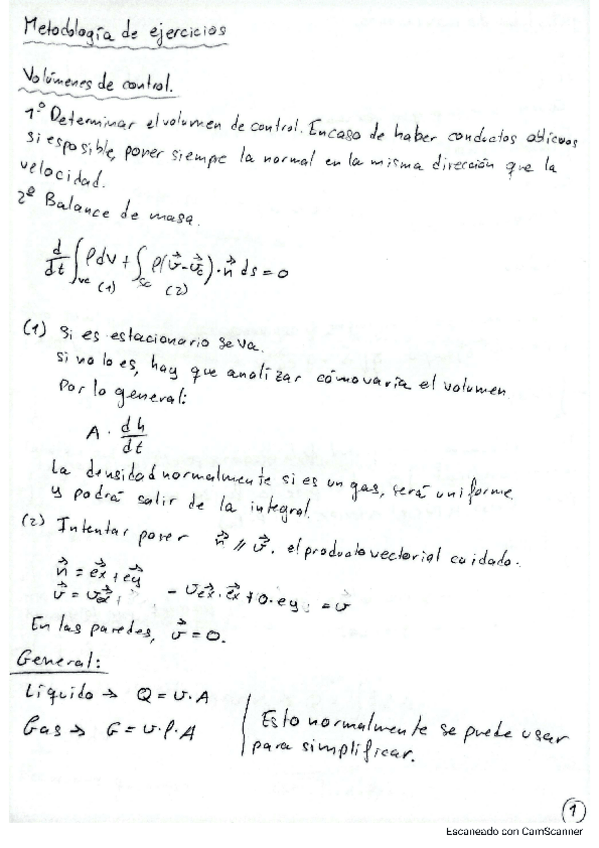 Metodología de ejercicios
Volúmenes de control.
1º Determinar el volumen de control. En caso de haber conductos oblicuos
si es posible, poner siempre la normal en la misma dirección que la
velocidad.
2º Balance de masa.
d/dt ∫vc ρdV + ∫sc ρ(v⃗-v⃗c)·n⃗ ds = 0
(1) (2)
(1) Si es estacionario se va.
si no lo es, hay que analizar cómo varía el volumen
Por lo general:
A · dh/dt
La densidad normalmente si es un gas, será uniforme
y podrá salir de la integral.
(2) Intentar poner n⃗ // v⃗. el producto vectorial cuidado.
n⃗ = e⃗x + e⃗y
v⃗ = v e⃗x, - v e⃗x · e⃗x + 0 · ey, = v
En las paredes, v⃗ = 0.
General:
Líquido → Q = v·A
Gas → G = v·ρ·A
Esto normalmente se puede usar
para simplificar.
1
Escaneado con CamScanner